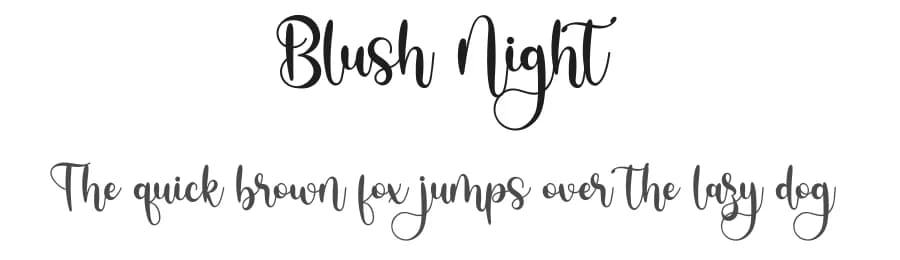 Blush Night
The quick brown fox jumps over the lazy dog